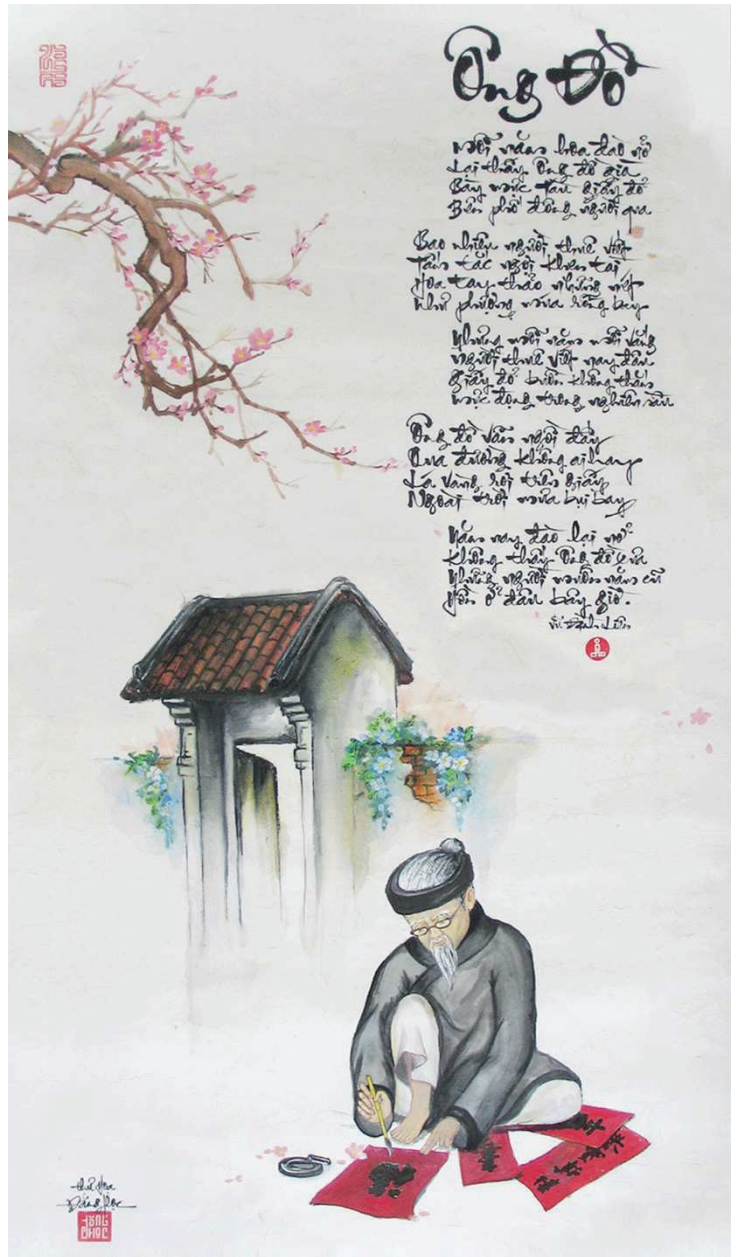 Ông Đồ
Mỗi năm hoa đào nở
Lại thấy Ông đồ già
Bày mực Tàu giấy đỏ
Bên phố đông người qua
Bao nhiêu người thuê viết
Tấm tắc ngợi khen tài
Hoa tay thảo những nét
Như phượng múa rồng bay
Nhưng mỗi năm mỗi vắng
Người thuê viết nay đâu
Giấy đỏ buồn không thắm
Mực đọng trong nghiên sầu
Ông đồ vẫn ngồi đấy
Qua đường không ai hay
Lá vàng rơi trên giấy
Ngoài trời mưa bụi bay
Năm nay đào lại nở
Không thấy Ông đồ xưa
Những người muôn năm cũ
Hồn ở đâu bây giờ.
Vũ Đình Liên
thư họa